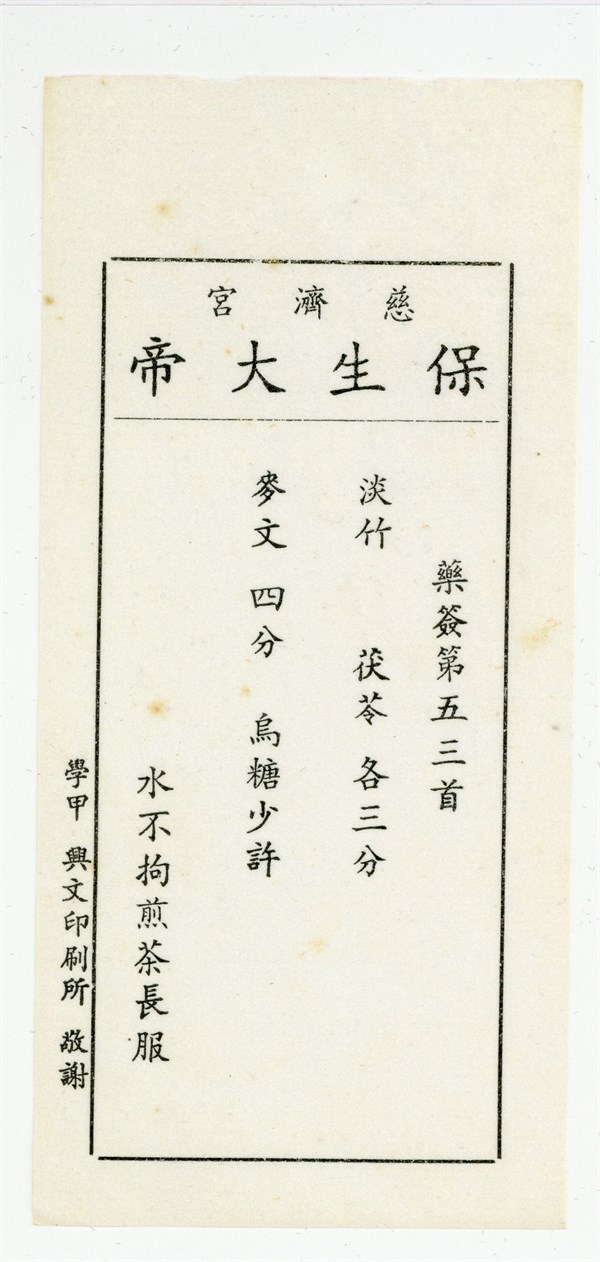 慈濟宮
保生大帝
藥簽第五三首
淡竹 茯苓 各三分
麥文 四分 烏糖少許
水不拘煎茶長服
學甲 興文印刷所 敬謝